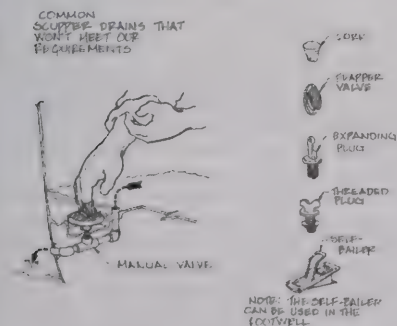 COMMON
SCUPPER DRAINS THAT
WON'T MEET OUR
REQUIREMENTS
CORK
FLAPPER
VALVE
EXPANDING
PLUG
THREADED
PLUG
SELF-
BAILER
MANUAL VALVE
NOTE: THE SELF-BAILER
CAN BE USED IN THE
FOOTWELL